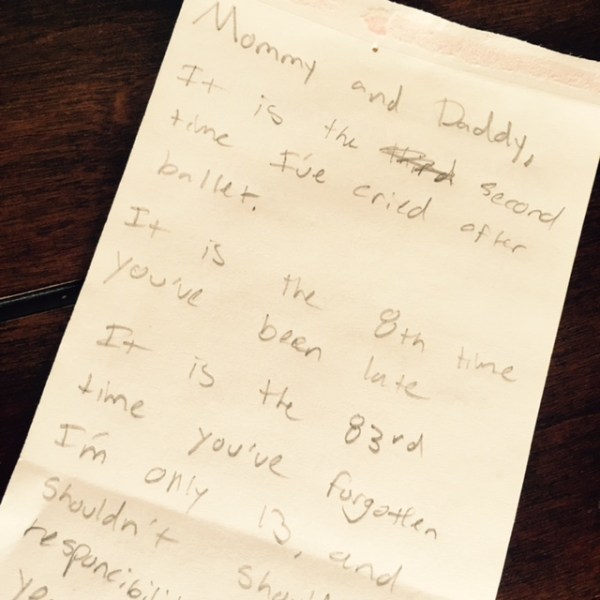 Mommy and Daddy,
It is the second
time I've cried after
ballet.
It is the 8th time
you've been late
It is the 83rd
time you've forgotten
I'm only 13, and
shouldn't